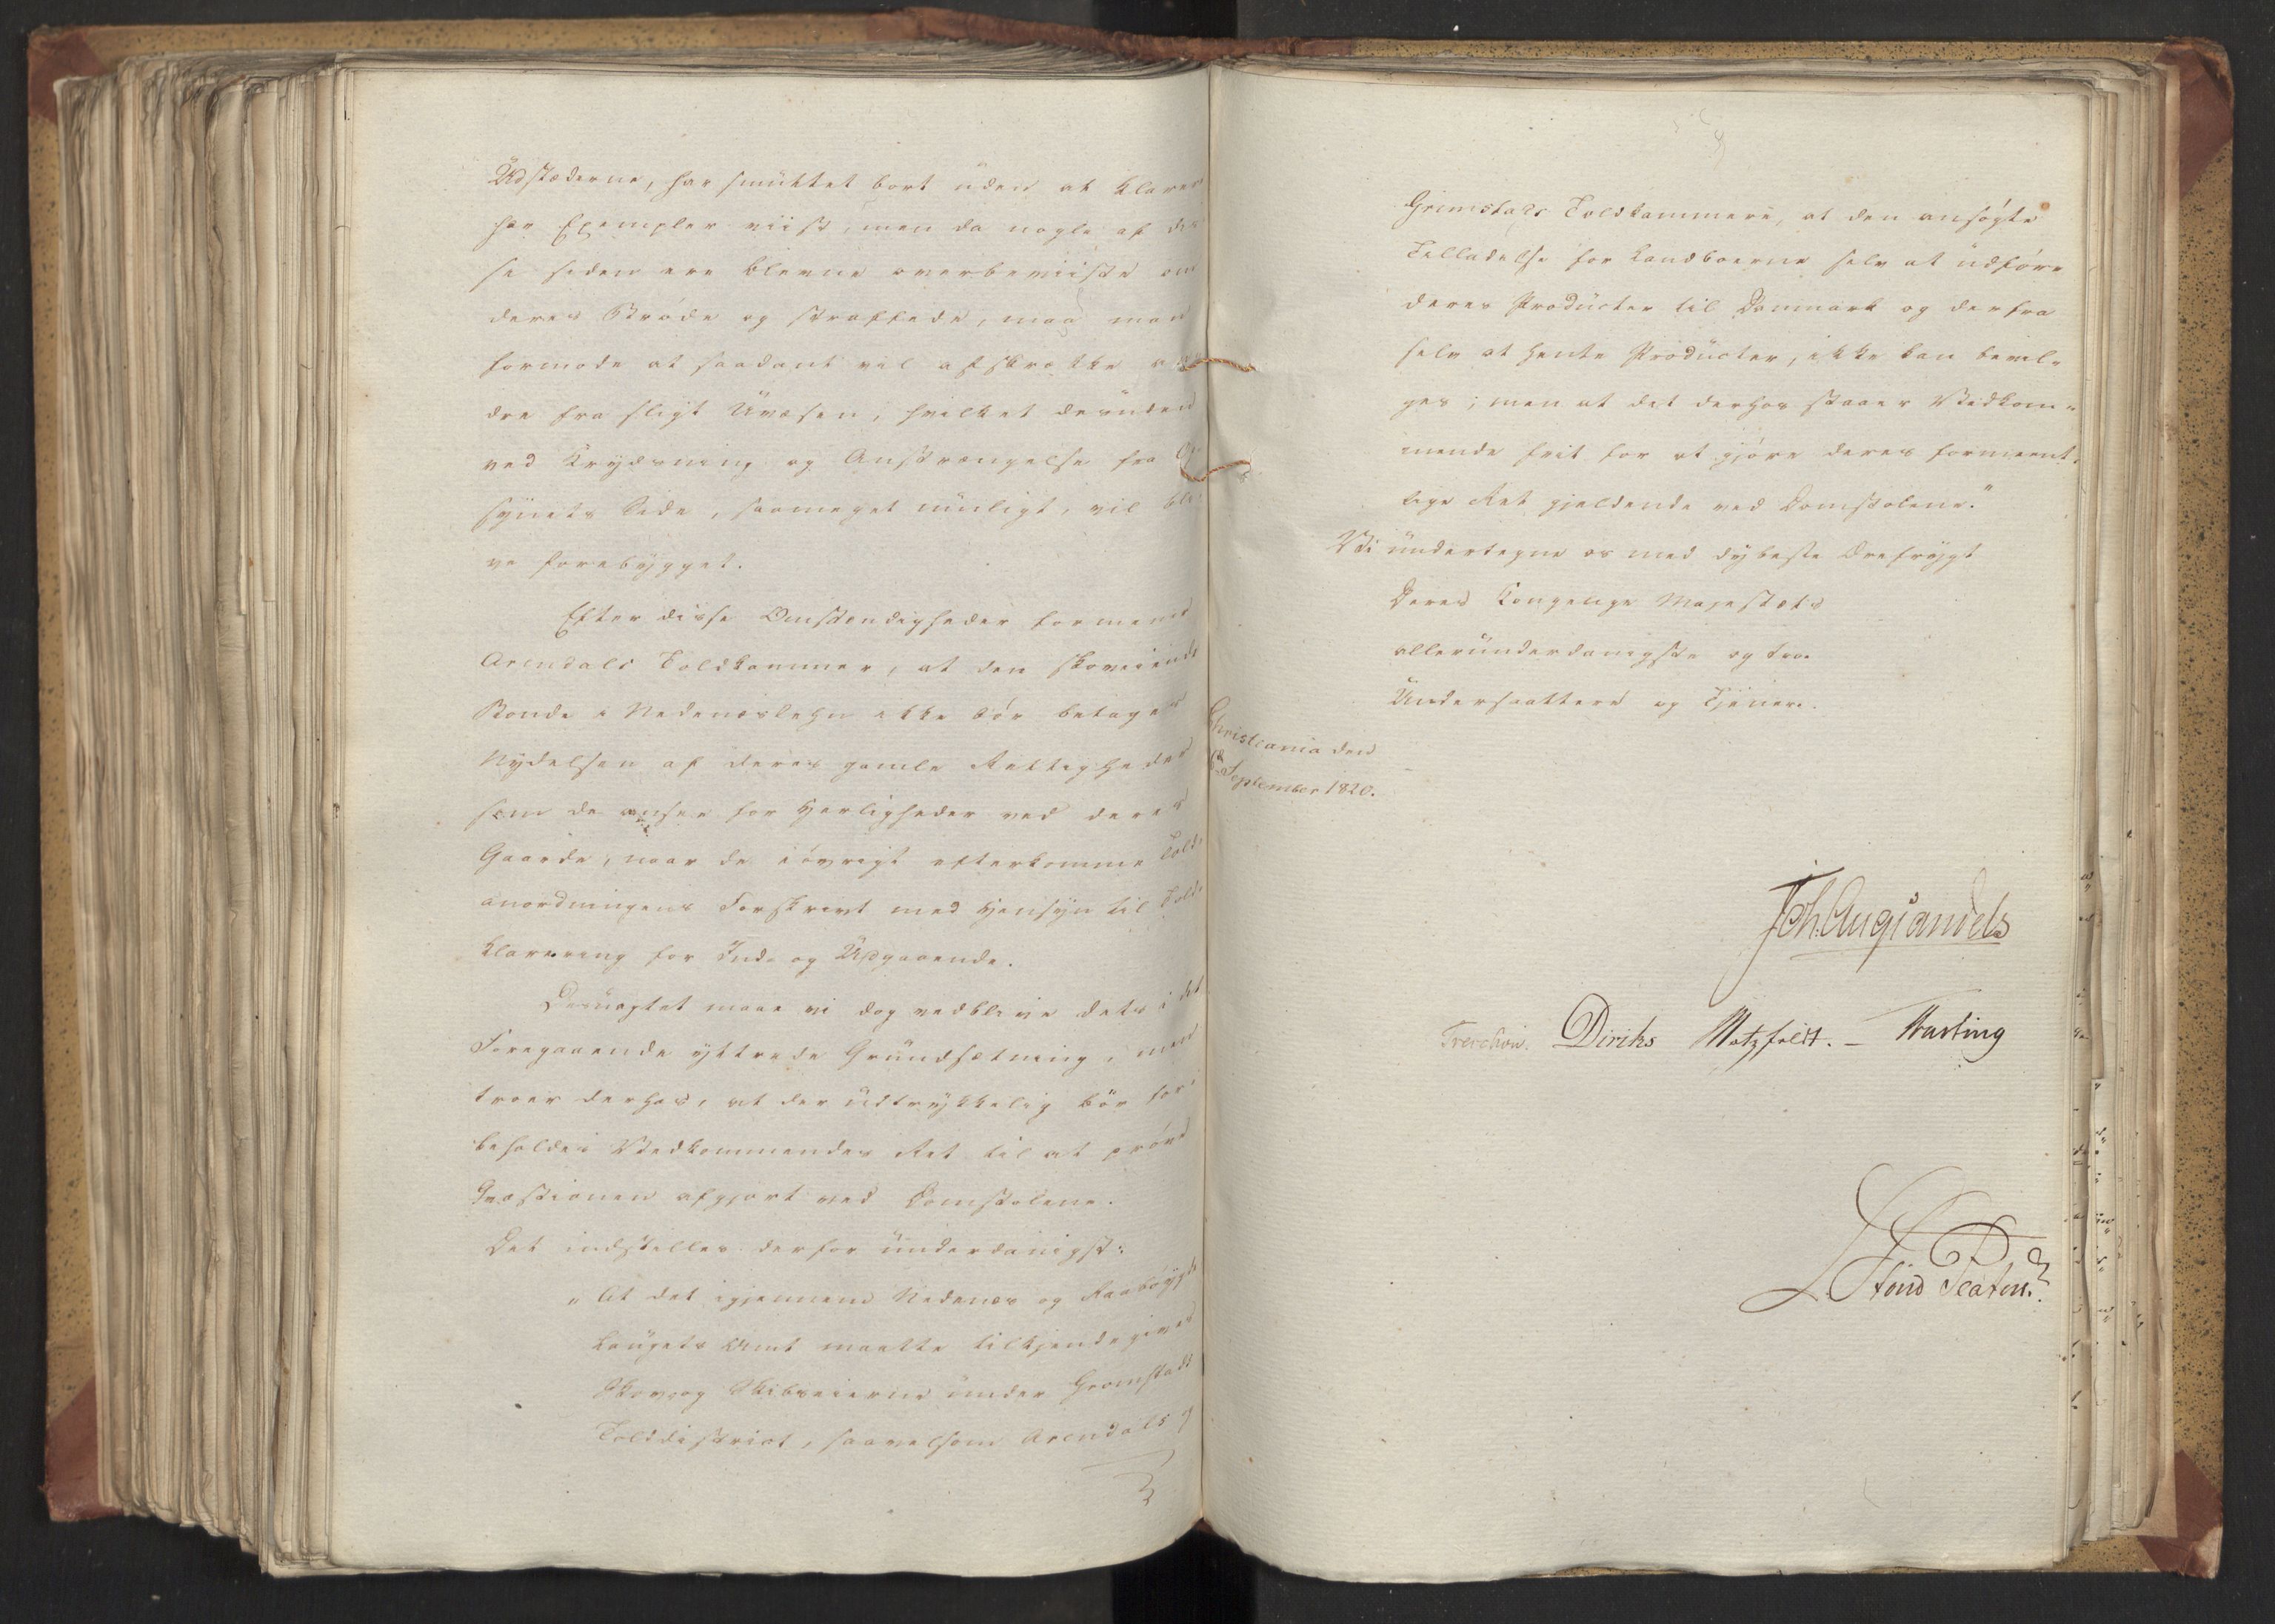 Udstæderne, har smuttet bort uden at klarere
har Exempler viist, men da nogle af dis
se siden ere blevne overbeviiste om
deres Brøde og straffede, maa man
formode at saadant vil afskrække an
dre fra sligt Uvæsen, hvilket desuden
ved Krydsning og Anstrængelse fra Op
synets Side, saameget muligt, vil bli
ve forebygget.
Efter disse Omstændigheder formener
Arendals Toldkammer, at den skoveiende
Bonde i Nedenæs Lehn ikke bør betages
Nydelsen af deres gamle Rettigheder
som de ansee for Herligheder ved deres
Gaarde, naar de iøvrigt efterkomme Told-
anordningens Forskrivt med Hensyn til Told-
klarering for Ind- og Udgaaende.
Desuagtet maae vi dog vedblive dets i det
Foregaaende yttrede Grundsætning, men
troer derhos, at der udtrykkelig bør for-
beholdes Vedkommendes Ret til at prøve
Qvæstionen afgjort ved Domstolene.
Det indstilles derfor underdanigst:
"At det igjennem Nedenæs og Raabøyde-
laugets Amt maatte tilkjendegives
Skov- og Skibseierne under Grimstads
Tolddistrict, saavelsom Arendals og
Grimstads Toldkammere, at den ansøgte
Tilladelse for Landboerne selv at udføre
deres Producter til Danmark og derfra
selv at hente Producter, ikke kan bevil-
ges; men at det derhos staaer Vedkom-
mende frit for at gjøre deres formeent-
lige Ret gjeldende ved Domstolene."
Vi undertegne os med dybeste Ærefrygt
Deres Kongelige Majestæts
allerunderdanigste og troe
Undersaattere og Tjenere.
Christiania den
6te September 1820.
Joh. Aug. Sandels
Treschow. Diriks Motzfeldt. - Fasting